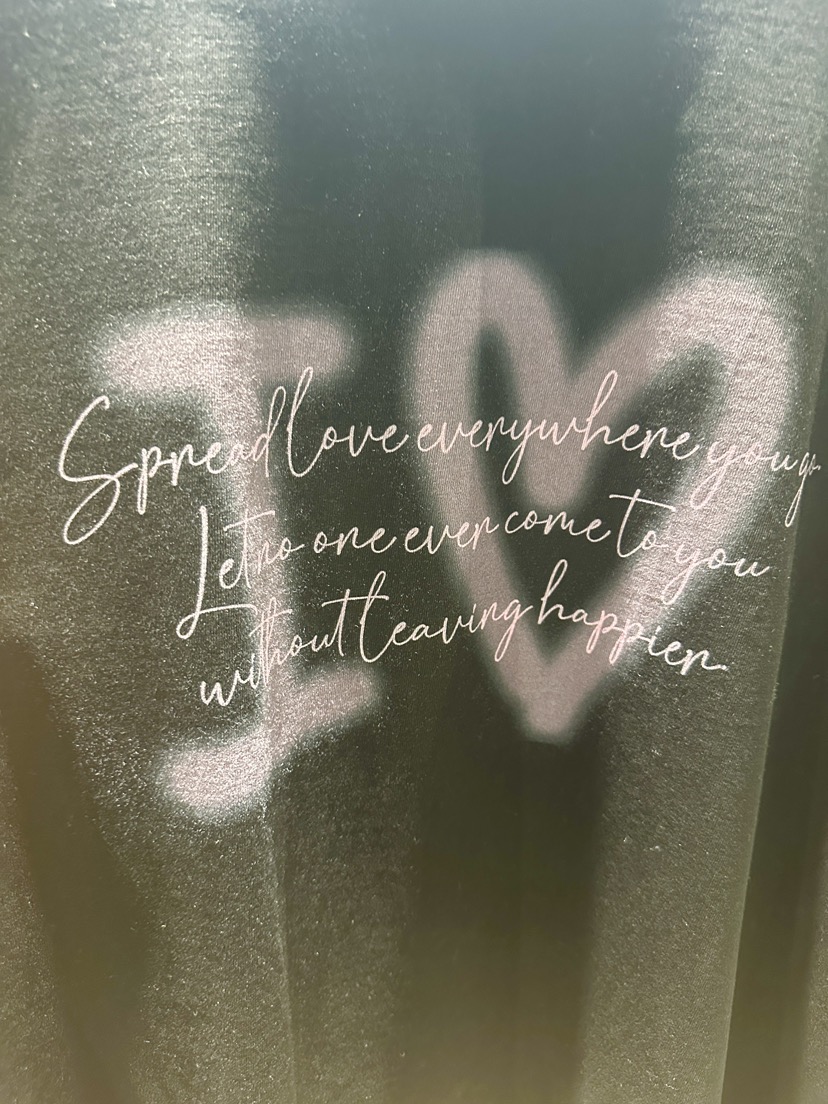 I ♡
Spread love everywhere you go
Let no one ever come to you
without leaving happier.